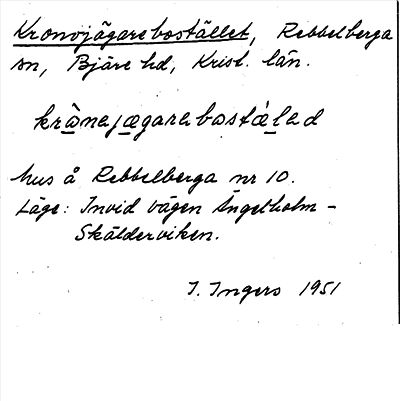 Kronojägarebostället, Rebbelberga
sn, Bjäre hd, Krist. län.
krànajægarabostǽlad
hus å Rebbelberga nr 10.
Läge: Invid vägen Ängelholm -
Skälderviken.
I. Ingers 1951